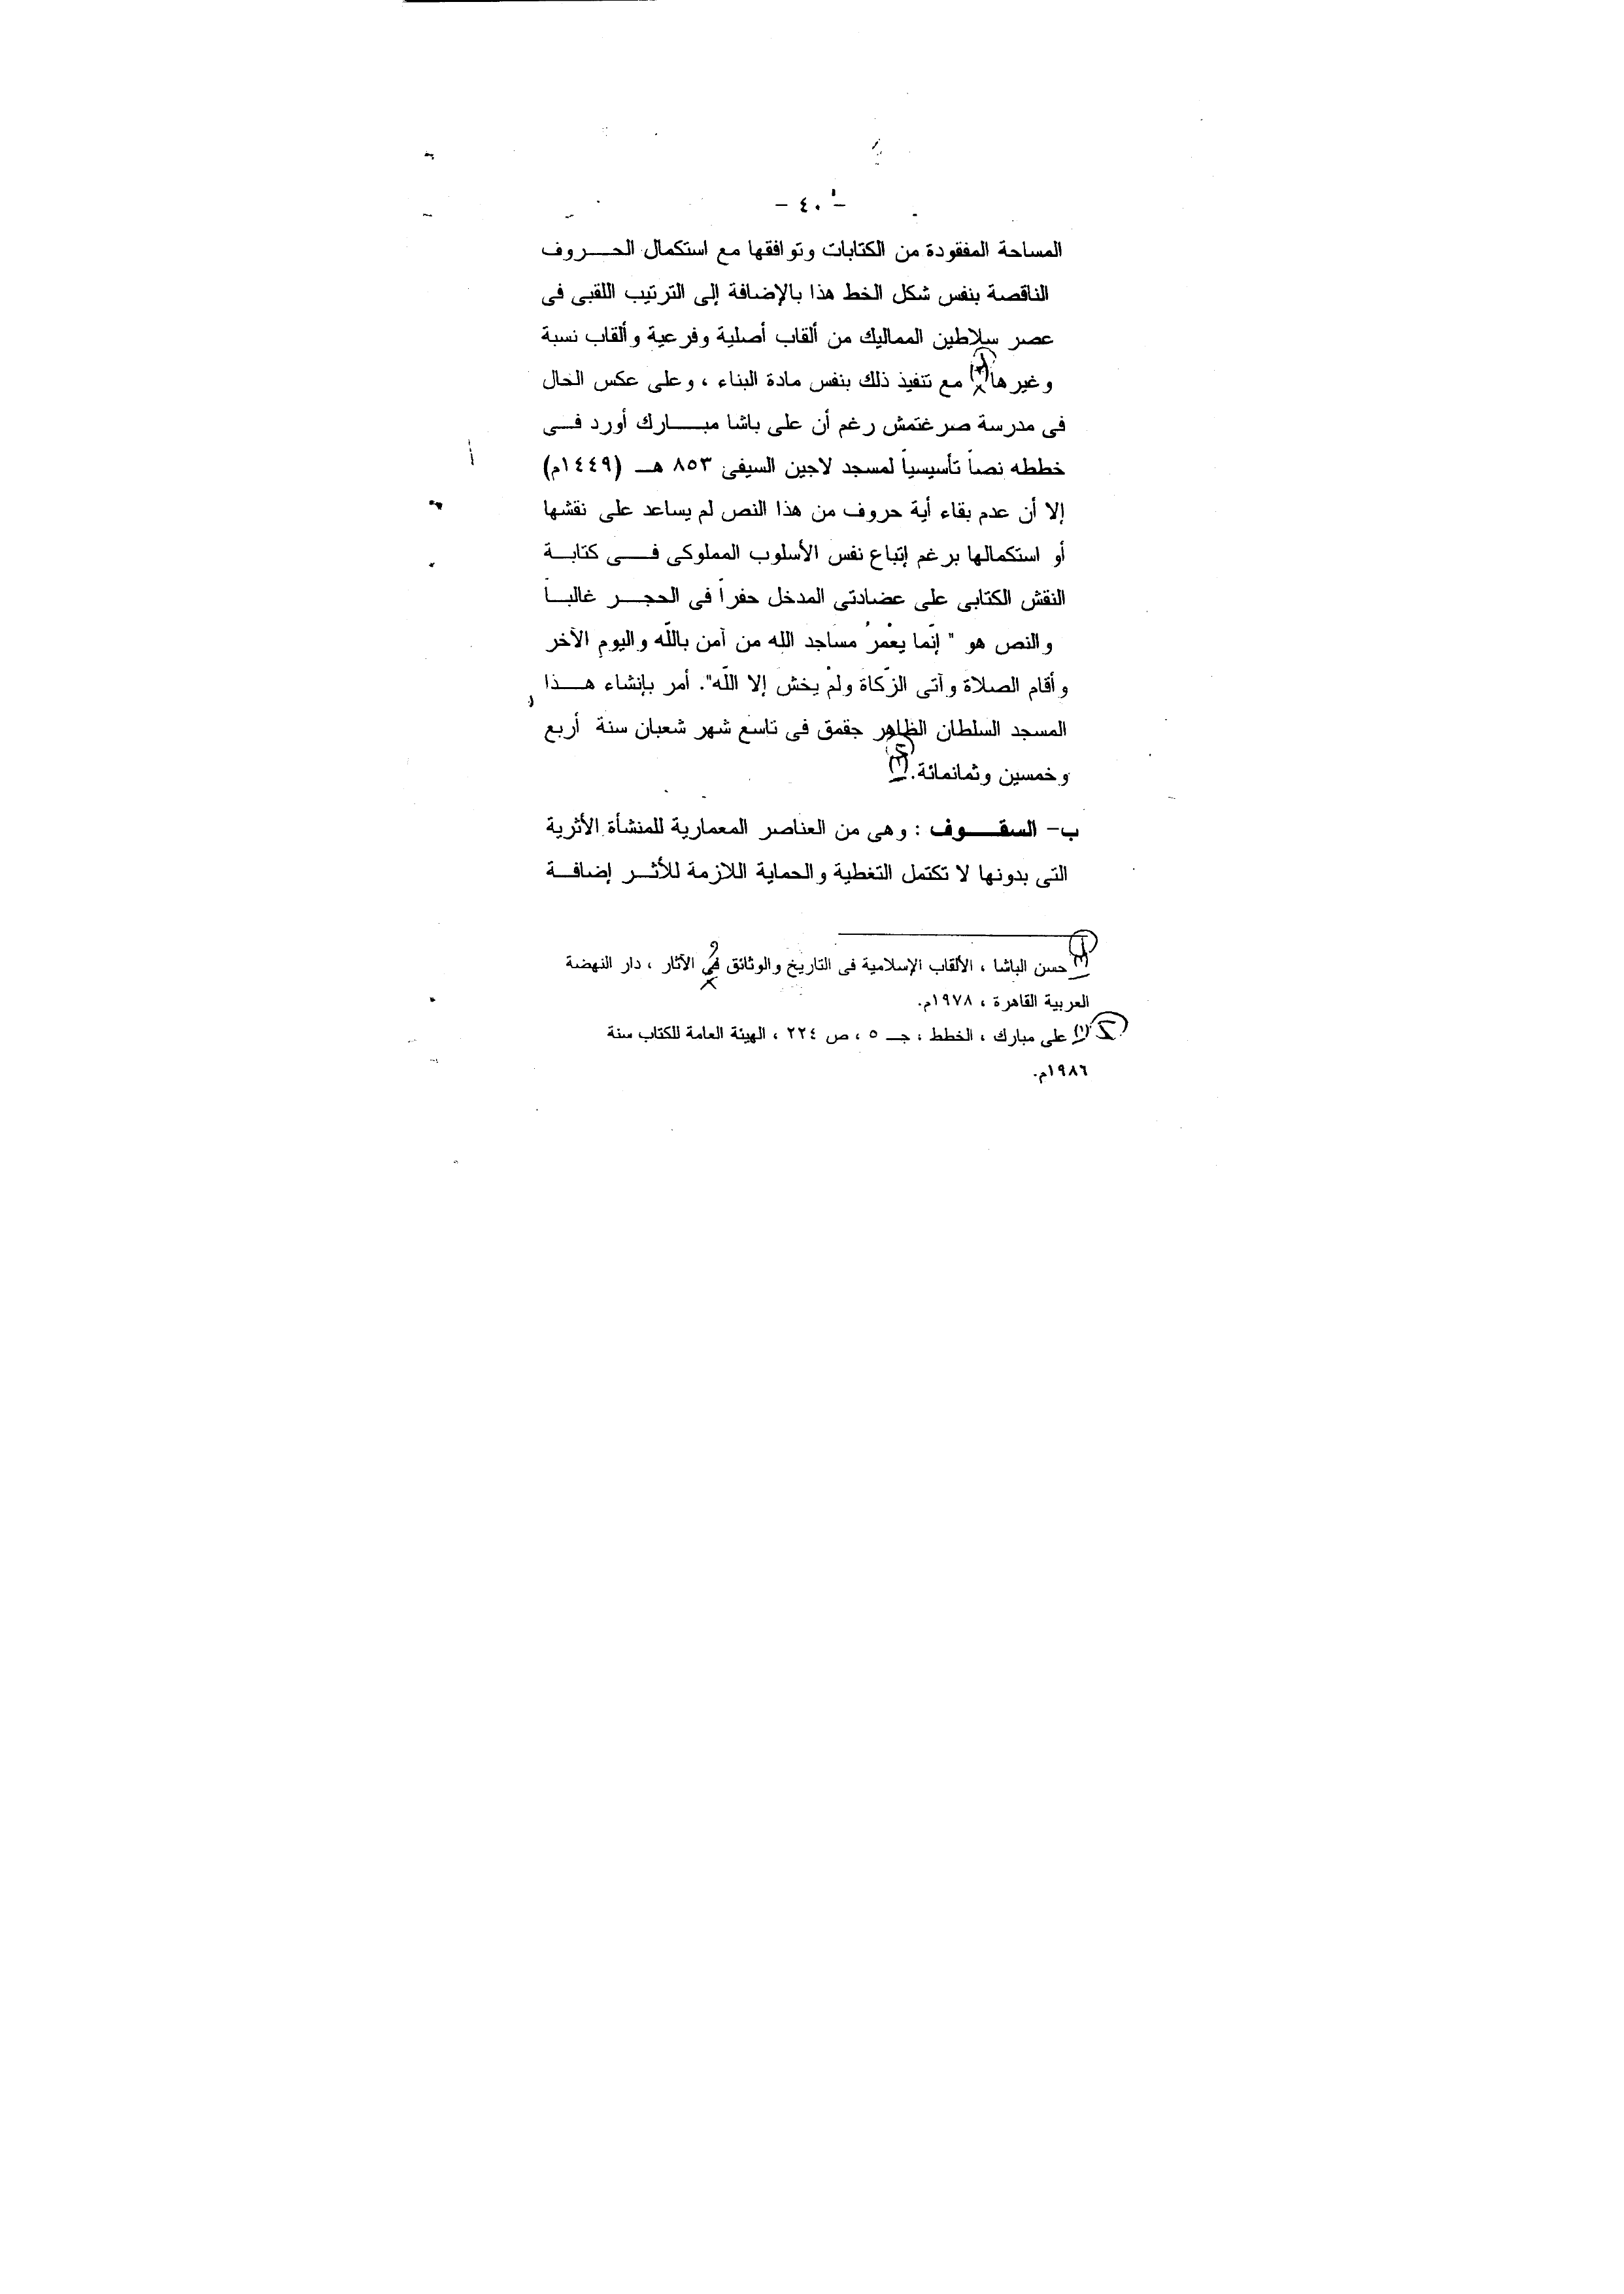 - ٤٠ -
المساحة المفقودة من الكتابات وتوافقها مع استكمال الحـــروف
الناقصة بنفس شكل الخط هذا بالإضافة إلى الترتيب اللقبى فى
عصر سلاطين المماليك من ألقاب أصلية وفرعية وألقاب نسبة
وغيرها مع تنفيذ ذلك بنفس مادة البناء ، وعلى عكس الحال
فى مدرسة صرغتمش رغم أن على باشا مبـــارك أورد فـــى
خططه نصاً تأسيسياً لمسجد لاجين السيفى ٨٥٣ هـ (١٤٤٩م)
إلا أن عدم بقاء أية حروف من هذا النص لم يساعد على نقشها
أو استكمالها برغم إتباع نفس الأسلوب المملوكى فـــى كتابـــة
النقش الكتابى على عضادتى المدخل حفراً فى الحجـــر غالبـــاً
والنص هو " إنّما يعْمرُ مساجد الله من آمن باللّه واليوم الآخر
وأقام الصلاة وآتى الزّكاة ولمْ يخش إلا اللّه". أمر بإنشاء هـــذا
المسجد السلطان الظاهر جقمق فى تاسع شهر شعبان سنة أربع
وخمسين وثمانمائة.
ب- السقـــوف : وهى من العناصر المعمارية للمنشأة الأثرية
التى بدونها لا تكتمل التغطية والحماية اللازمة للأثـــر إضافـــة
حسن الباشا ، الألقاب الإسلامية فى التاريخ والوثائق فى الآثار ، دار النهضة
العربية القاهرة ، ١٩٧٨م.
(١) على مبارك ، الخطط ، جـ ٥ ، ص ٢٢٤ ، الهيئة العامة للكتاب سنة
١٩٨٦م.